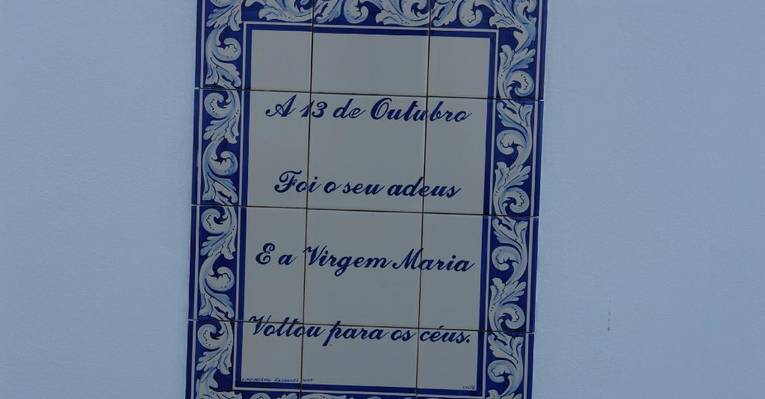 A 13 de Outubro
Foi o seu adeus
E a Virgem Maria
Voltou para os céus.